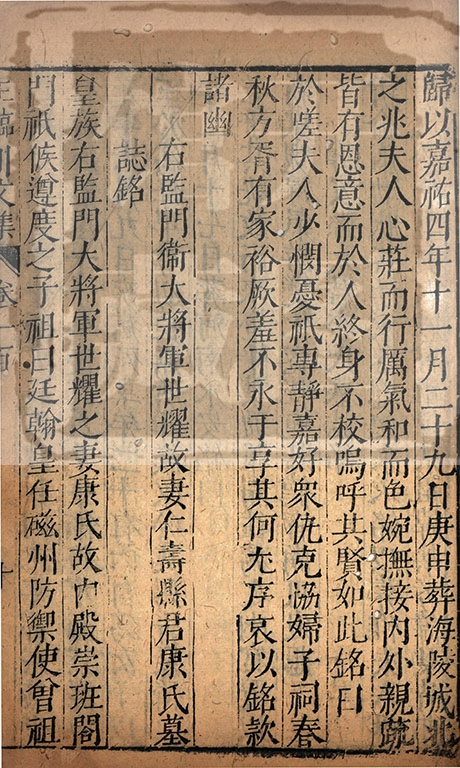 歸以嘉祐四年十一月二十九日庚申葬海陵城北
之兆夫人心莊而行厲氣和而色婉撫接内外親䟽
皆有恩意而於人終身不校嗚呼其賢如此銘曰
於嗟夫人少憫憂祇專靜嘉好衆仇克協婦子祠春
秋方胥有家裕厥羞不永于享其何尤序哀以銘款
諸幽
右監門衞大將軍世耀故妻仁壽縣君康氏墓
誌銘
皇族右監門大將軍世耀之妻康氏故内殿崇班閤
門祇候遵度之子祖曰廷翰皇任磁州防禦使曾祖
王臨川文集 卷一百 十